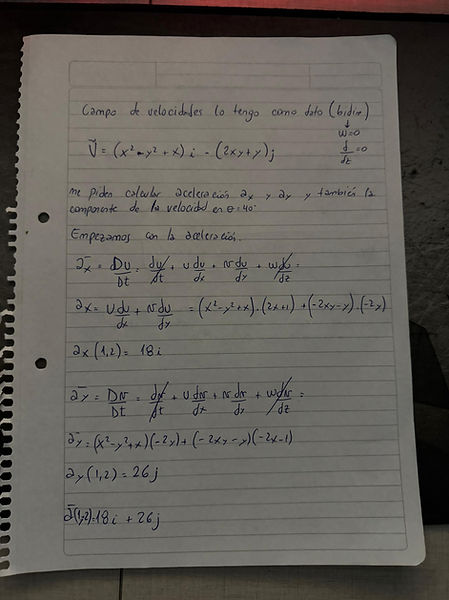 Campo de velocidades lo tengo como dato (bidim)
↓
w=0
V̄ = (x² - y² + x) i - (2xy+y) j
d/dz = 0
me piden calcular aceleración ax y ay y también la
componente de la velocidad en θ=40°
Empezamos con la aceleración.
āx = Du/Dt = du/dt + u du/dx + v du/dy + w du/dz =
ax = u du/dx + v du/dy = (x²-y²+x).(2x+1) + (-2xy-y).(-2y)
ax (1,2) = 18 i
āy = Dv/Dt = dv/dt + u dv/dx + v dv/dy + w dv/dz =
āy = (x²-y²+x)(-2y) + (-2xy-y)(-2x-1)
ay (1,2) = 26 j
ā(1,2)=18 i + 26 j